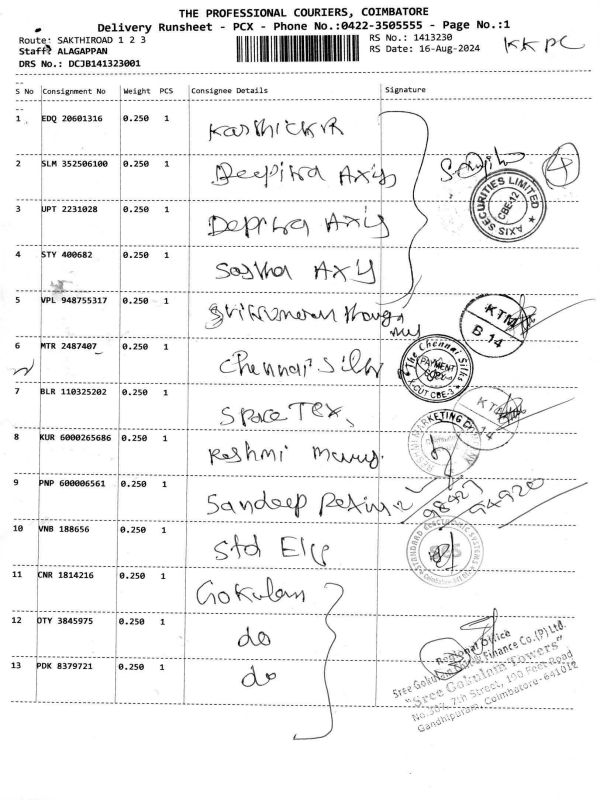 THE PROFESSIONAL COURIERS, COIMBATORE
Delivery Runsheet - PCX - Phone No.:0422-3505555 - Page No.:1
Route: SAKTHIROAD 1 2 3
RS No.: 1413230
KKPC
Staff: ALAGAPPAN
RS Date: 16-Aug-2024
DRS No.: DCJB141323001
S No Consignment No Weight PCS Consignee Details Signature
1 EDQ 20601316 0.250 1 Karthick R
2 SLM 352506100 0.250 1 Axis
4
AXIS SECURITIES LIMITED
CBE-12
3 UPT 2231028 0.250 1 Axis
4 STY 400682 0.250 1 Axis
5 VPL 948755317 0.250 1
KTM
B 14
6 MTR 2487407 0.250 1 Chennai Silk
The Chennai Silks
PAYMENT
X-CUT CBE-3
7 BLR 110325202 0.250 1 Space Tex
KTM
14
8 KUR 6000265686 0.250 1 Reshmi
MARKETING
9 PNP 600006561 0.250 1 Sandeep
98427
94920
10 VNB 188656 0.250 1 Std Ele
STANDARD ELECTRONIC SYSTEMS
SES
Coimbatore
11 CNR 1814216 0.250 1 Gokulam
12 OTY 3845975 0.250 1 do
13 PDK 8379721 0.250 1 do
Regional Office
Sree Gokulam Finance Co.(P) Ltd.
"Sree Gokulam Towers"
No.307, 7th Street, 100 Feet Road
Gandhipuram, Coimbatore-641012